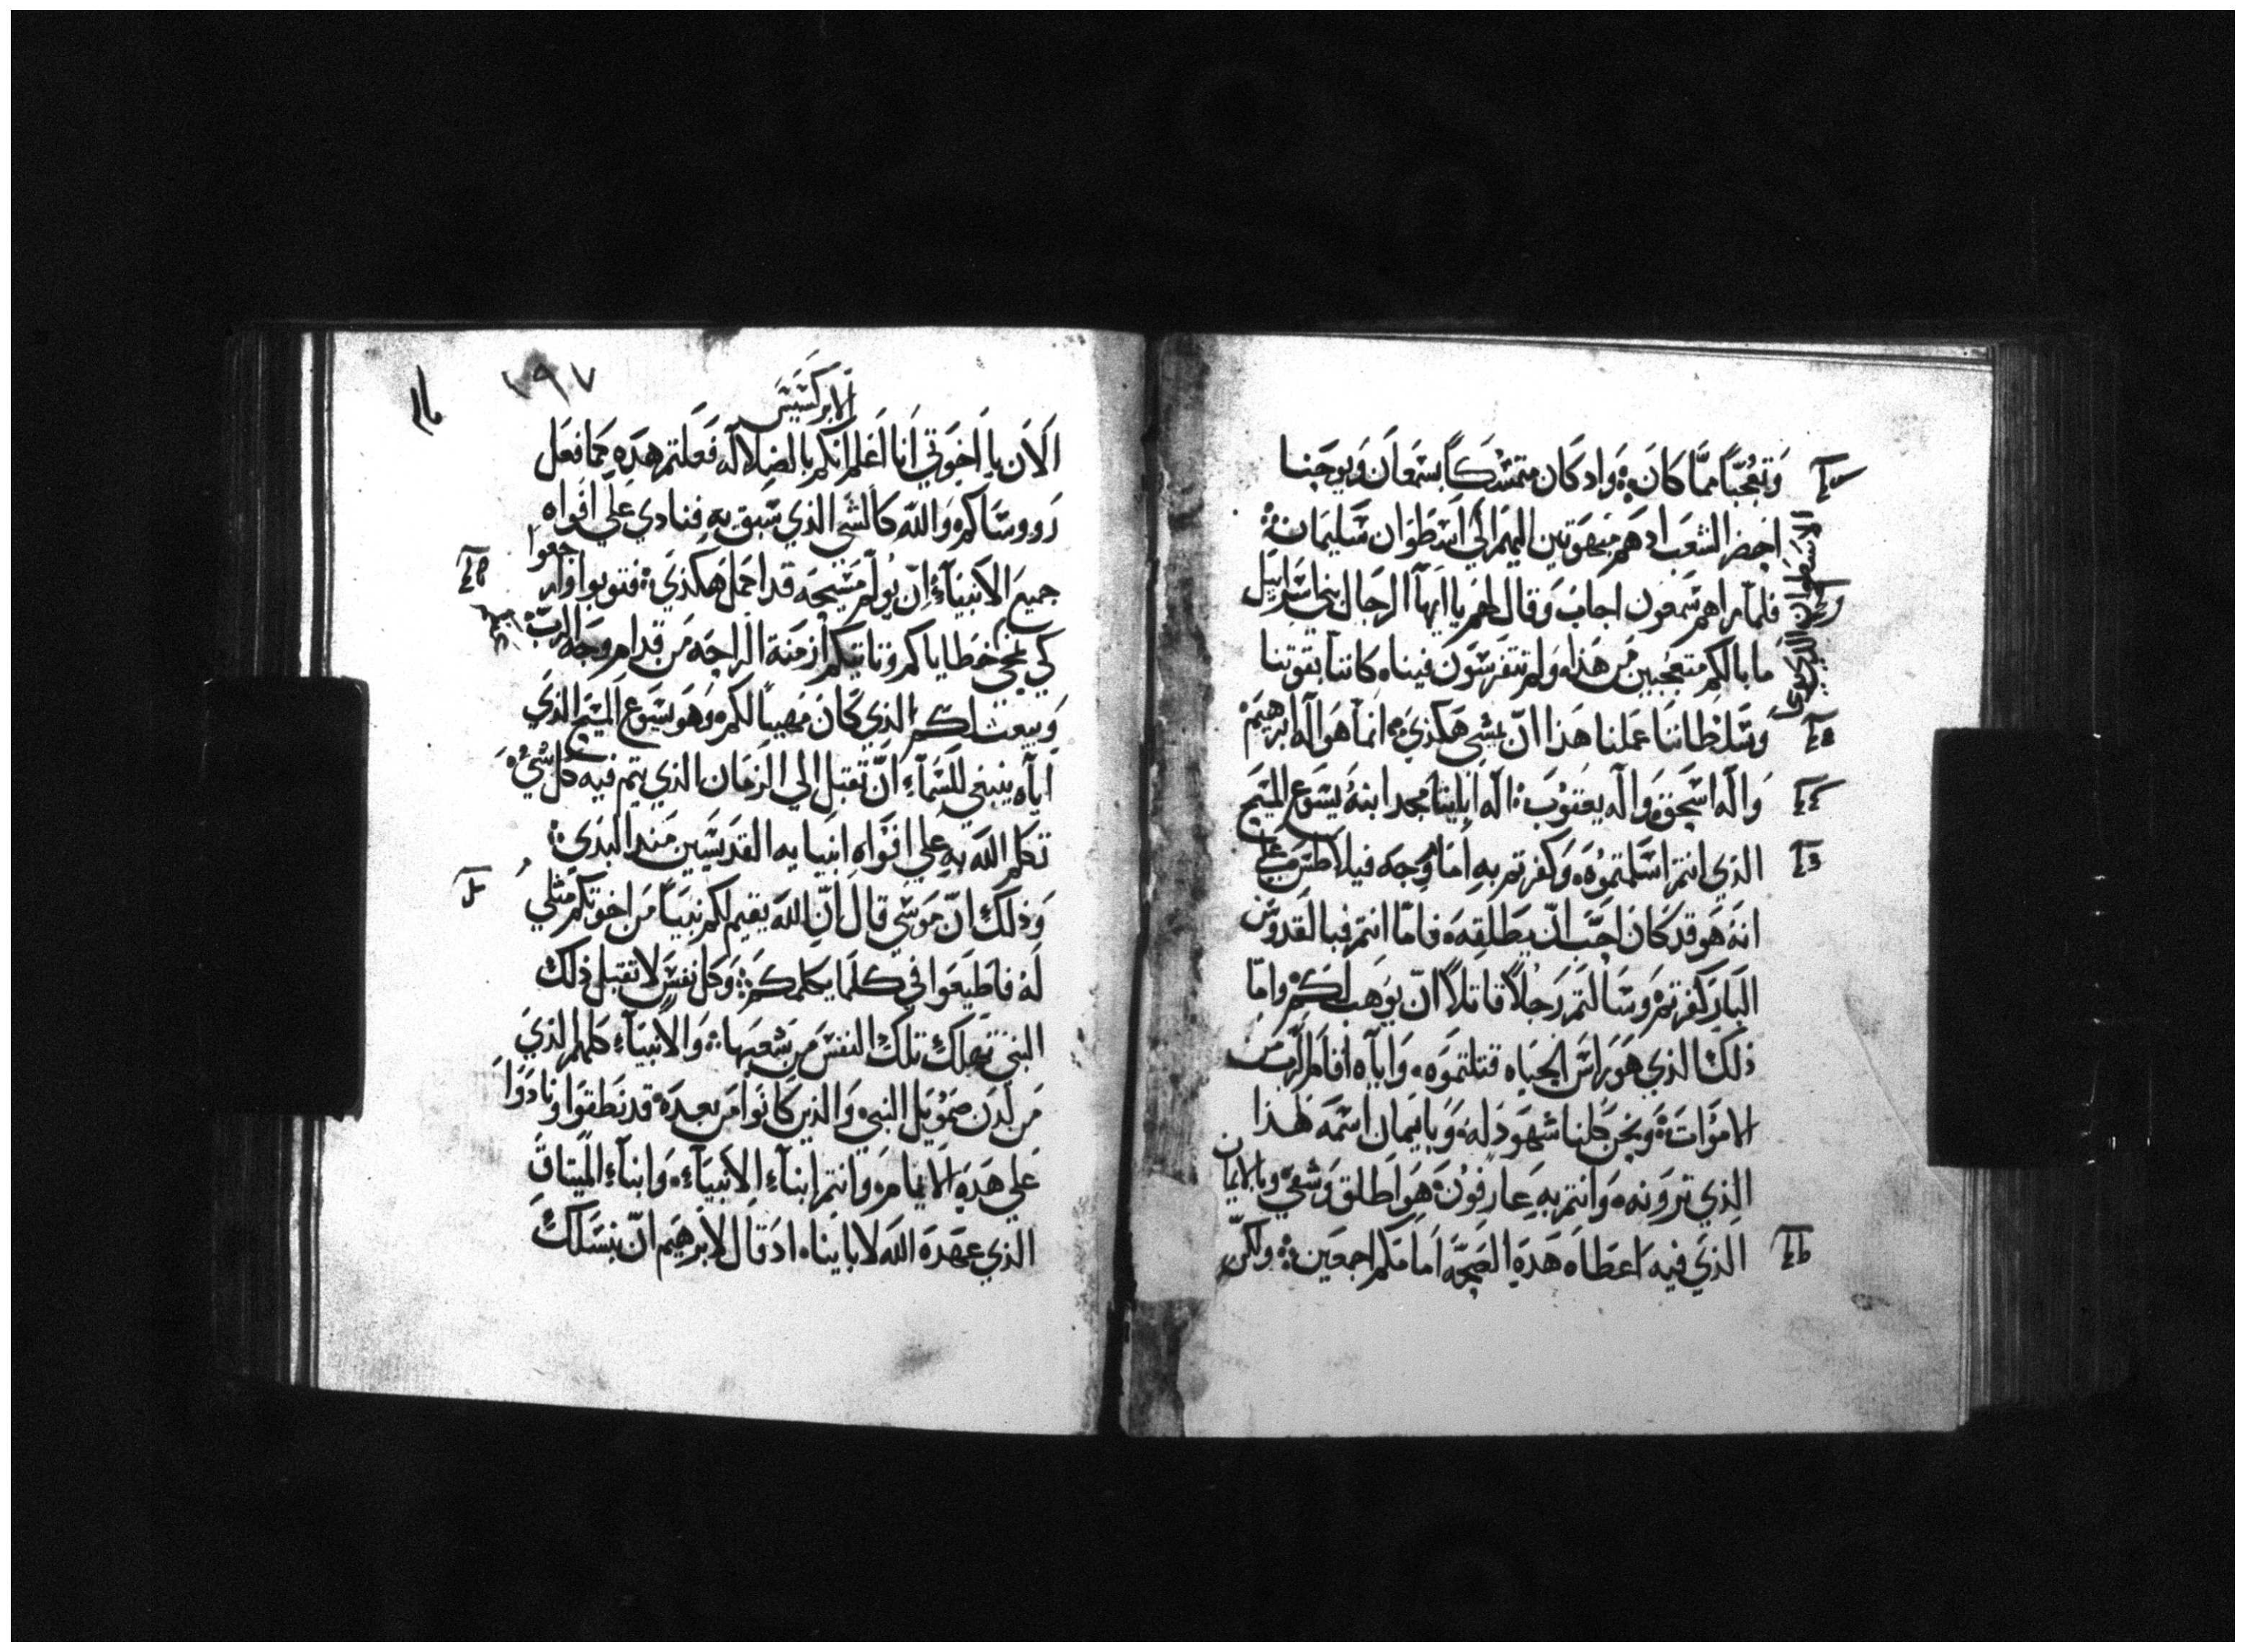 وَتعجُبّاً ممّا كانَ ۀ وَاد كَان متمسّكاً بسمعَان وَيوحَنا
احضر الشعَب ادهَم مَبهَوتين اليهَم الي اَسطوَان سَليمَان ۀ
الاسَطوان
فلمآ راهم سَمعون اجابَ وَقال لهَم يا ايهآ الرجَال بني اسَراييَل
ما بالكم متعَجبين مَن هَذا ه وَلم تتفرسَون فينا ه كاننآ بقوتنا
وَسَلطاننَا عَملنا هَذا انّ يمشي هَكذيَ ۀ انمآ هوَ الَه ابرَهيَم
وَالَه اسَحقَ وَالَه يعَقوُبَ ۀ الَه اَبايَنا مجد ابنهُ يسَوع المسَيح
الذي انتم اسَلمتموُه ۀ وَكفرتم به اَمَام وَجه فيلاطسَ
انهَ هوَ قد كانَ احبَ انّ يطَلقه ۀ فامّا انتم فبالقدوسَ
البَار كفرتمۀ وَسَالتم رَجلاً قاتلاً انّ يوَهب لكمۀ وامّا
ذلكَ الذي هوَ راسَ الحيَاه قتلتموَه ۀ وَاياَه اقام الله من
الامَواتَ ۀ وَنحن كلنا شهوَد لهَ ۀ وَبايمان اسَمَه هَذا
الذي ترَونه ۀ وَانتم بهِ عَارفوُنَ ۀ هوَ اطلق وَشفيَ وبالايمان
الذيَ فيه اعطاَه هَدهَ الصَحّه اَمامكم اجمعَين ۀ ولكن
١٩٧
الابركسَيسَ
الاَن يا اَخوَتي اَنا اَعَلم اَنكم بالضلاله فَعَلتم هَدهِ كما فعَل
رووسَاكم ۀ وَاللهَ كالشي الذي سَبق بهِ فنادي علي افوَاه
جميعَ الاَنبيَآءِ اِنّ يوُلم مَسَيحَه قد احمَل هَكذيَ ۀ فتوبوا وارجعوا
كي تمحي خطاياكم وتاتيكم ازمنة الرّاحَه مَن قدام وَجه الربّ
وَيبعَث لكم الذي كان مَهياً لكم ۀ وَهوَ يسَوع المسَيح الذيَ
اياَه ينبغي للسَمآءِ انّ تَقبل الي الزمَان الذي يتم فيه كل شيُ
تكلم اللهَ بهِ علي افوَاهِ انبيايه القدَيسَين مَند البدَي ۀ
وَذلكَ انّ موَسَي قال اِنّ اللهَ يقيم لكم نبيَاً مَن اخوَتكم مَثلي
لَهُ فاطيَعوَا في كلما يكلمكم ۀ وَكل نفسَ لا تقبل ذلكَ
النبيَ تهلكَ تلكَ النفسَ مَن شعَبهَا ۀ وَالاَنبيَآءِ كلهم الذيَ
مَن لَدَن صَموُيَل النبي ۀ وَالذين كانوا مَن بعدَه ۀ قد نطَقوَا وَنادَوَا
عَلي هَدهِ الايامۀ وَانتم ابنآءِ الاَنبيَآءِ ۀ وَابنآءِ الميَتاقَ
الذي عَهدَه اللهَ لابايناه ادَ قال لابَرهَيَم انّ بنسَلكَ